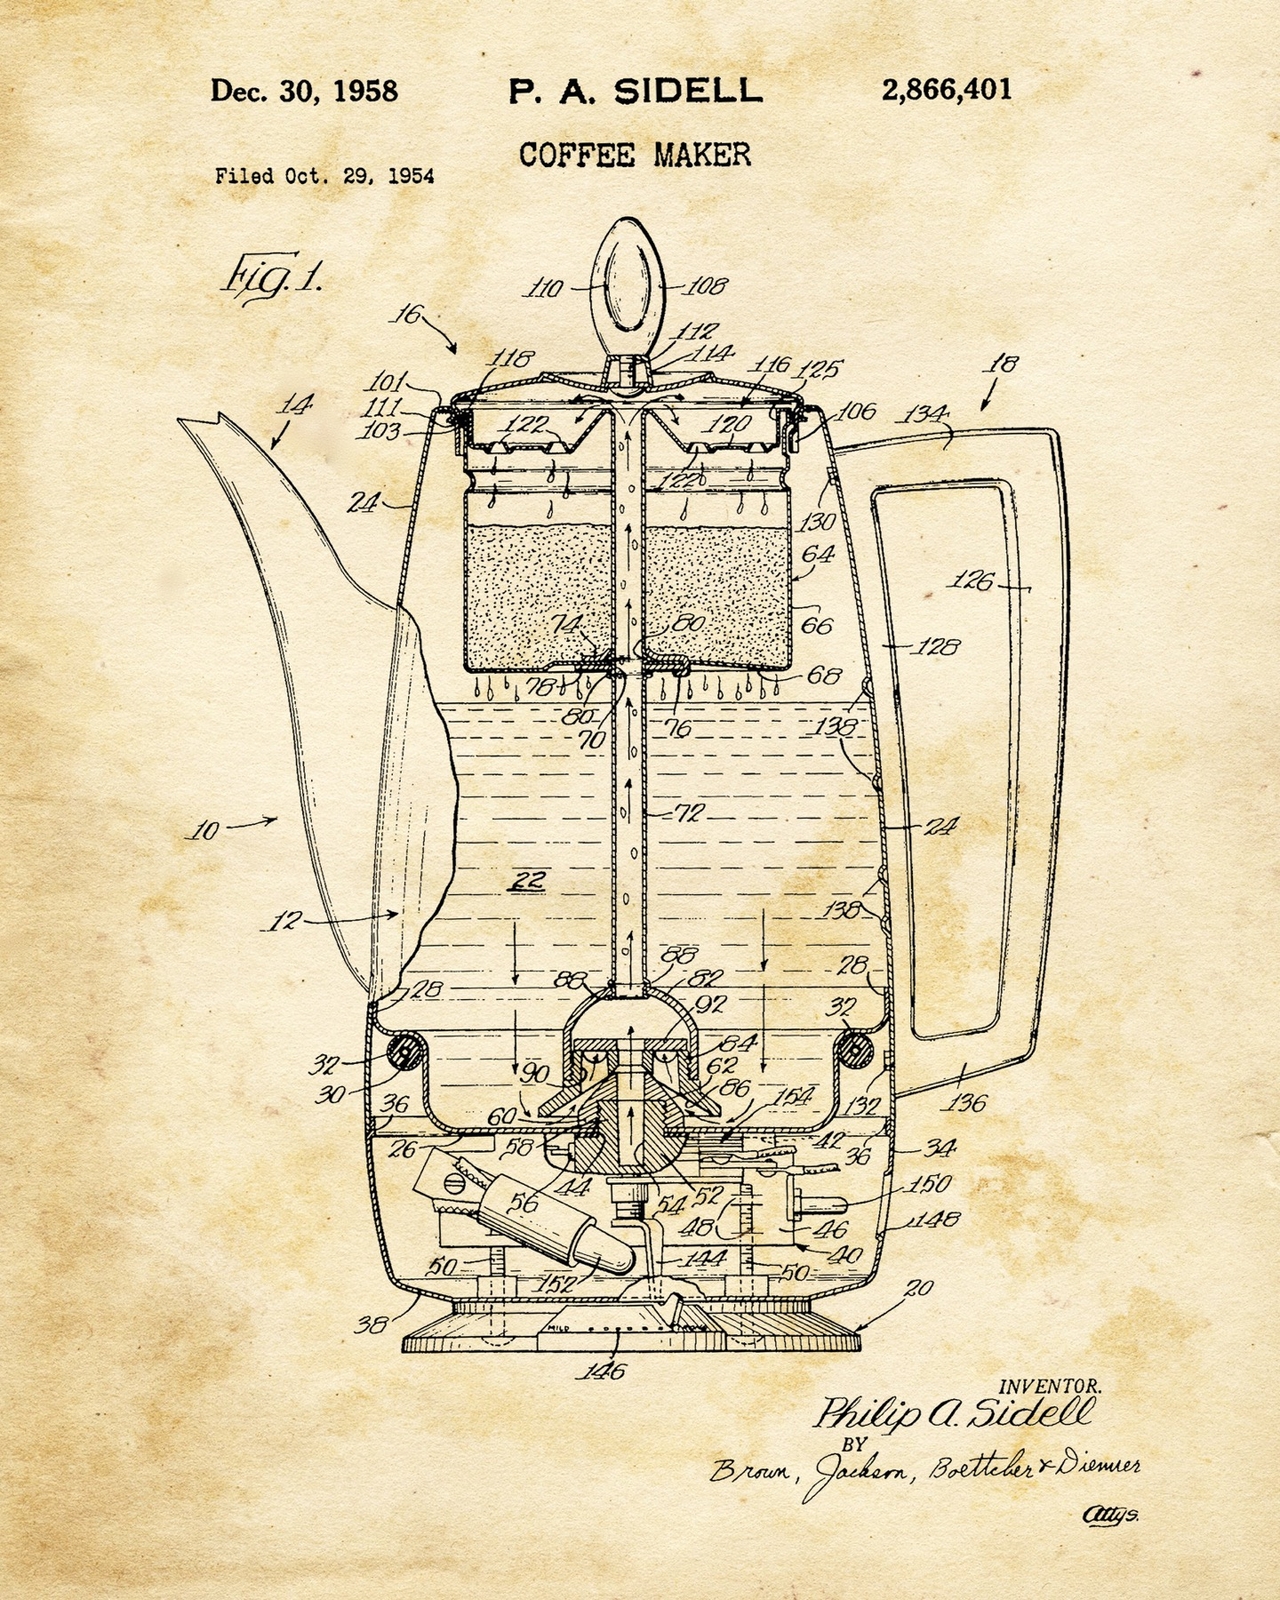 Dec. 30, 1958 P. A. SIDELL 2,866,401
COFFEE MAKER
Filed Oct. 29, 1954
Fig. 1.
110 108
16
112
118 114 116 125 18
101
14 111 106 134
103 122 120
122
24 130
64
126
74 80 66
128
78 68
80 76 138
70
72
10 24
22
12 138
88
28 88 82 28
92 32
32 84
90 62
30 86 154 132 136
36 60
26 58 42 36 34
56 44 54 52 150
48 46 148
50 144 40
152 50
38 20
MILD
146
INVENTOR.
Philip A. Sidell
BY
Brown, Jackson, Boettcher & Dienner
Attys.